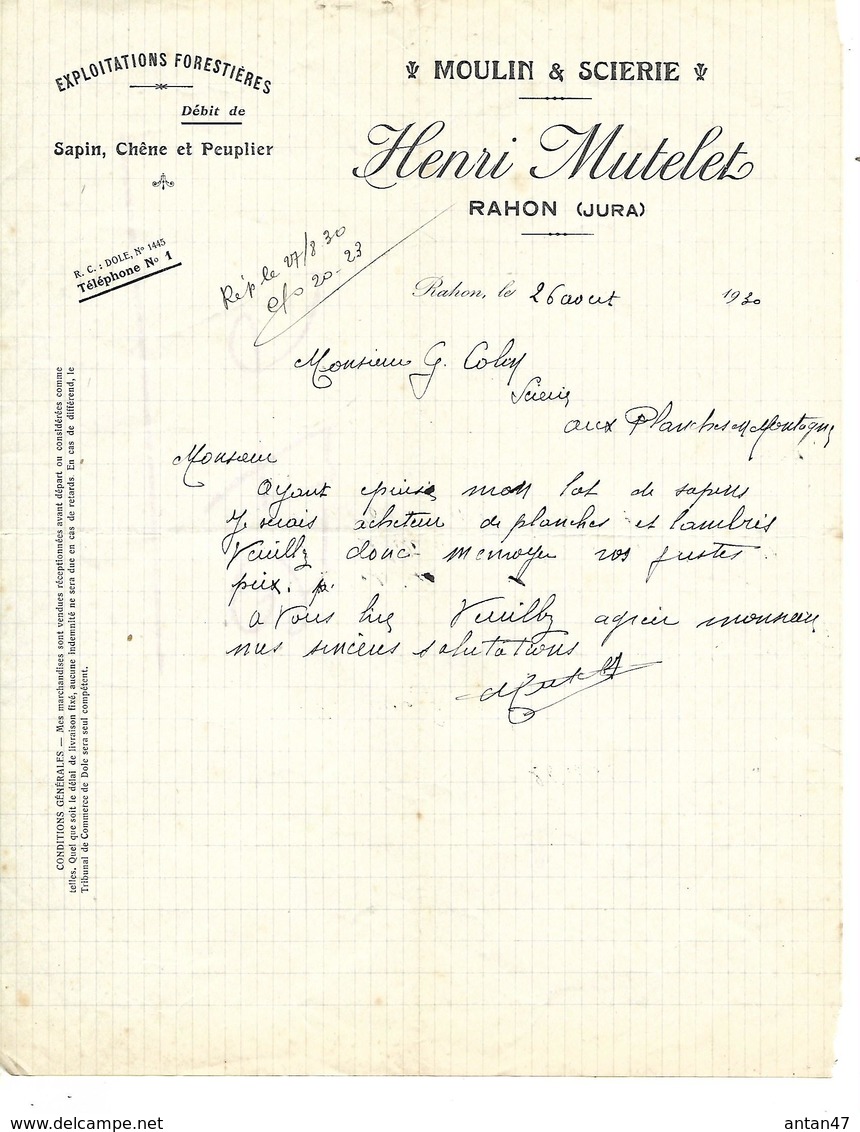 EXPLOITATIONS FORESTIÈRES
Débit de
Sapin, Chêne et Peuplier
R. C. : DOLE, Nº 1445
Téléphone Nº 1
MOULIN & SCIERIE
Henri Mutelet
RAHON (JURA)
Rép le 27/8 30
c/o 20-23
Rahon, le 26 aout 1930
Monsieur G. Colin
Scierie
aux Planches en Montagne
Monsieur
Ayant epuise mon lot de sapins
Je serais acheteur de planches et lambris
Veuillez donc m'envoyer vos justes
prix.
a Vous lire Veuillez agreer monsieur
mes sincères salutations
Mutelet
CONDITIONS GÉNÉRALES — Mes marchandises sont vendues réceptionnées avant départ ou considérées comme
telles. Quel que soit le délai de livraison fixé, aucune indemnité ne sera due en cas de retards. En cas de différend, le
Tribunal de Commerce de Dole sera seul compétent.
delcampe.net
antan47